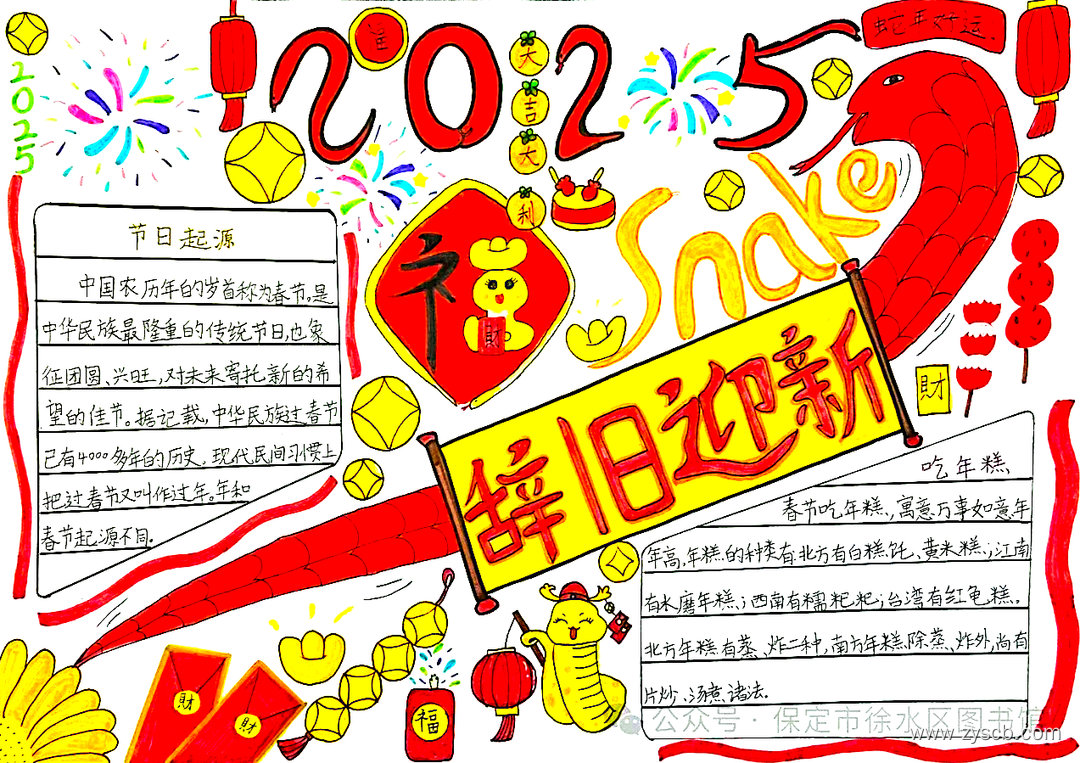 蛇年好运
2025
2025
大
吉
大
利
Snake
福
財
辞旧迎新
節日起源
中国农历年的岁首称为春节,是
中华民族最隆重的传统节日,也象
征团圆、兴旺,对未来寄托新的希
望的佳节。据记载,中华民族过春节
已有4000多年的历史。现代民间习惯上
把过春节又叫作过年。年和
春节起源不同。
財
吃年糕
春节吃年糕,寓意万事如意年
年高,年糕的种类有:北方有白糕饦、黄米糕;江南
有水磨年糕;西南有糯粑粑;台湾有红龟糕。
北方年糕有蒸、炸二种,南方年糕除蒸、炸外,尚有
片炒、汤煮诸法.
財
財
福
公众号·保定市徐水区图书馆
www.zyscb.com